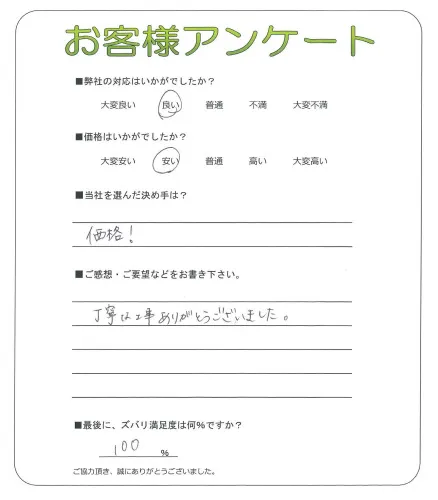 お客様アンケート
■弊社の対応はいかがでしたか？
大変良い 良い 普通 不満 大変不満
■価格はいかがでしたか？
大変安い 安い 普通 高い 大変高い
■当社を選んだ決め手は？
価格！
■ご感想・ご要望などをお書き下さい。
丁寧な工事ありがとうございました。
■最後に、ズバリ満足度は何％ですか？
100 ％
ご協力頂き、誠にありがとうございました。